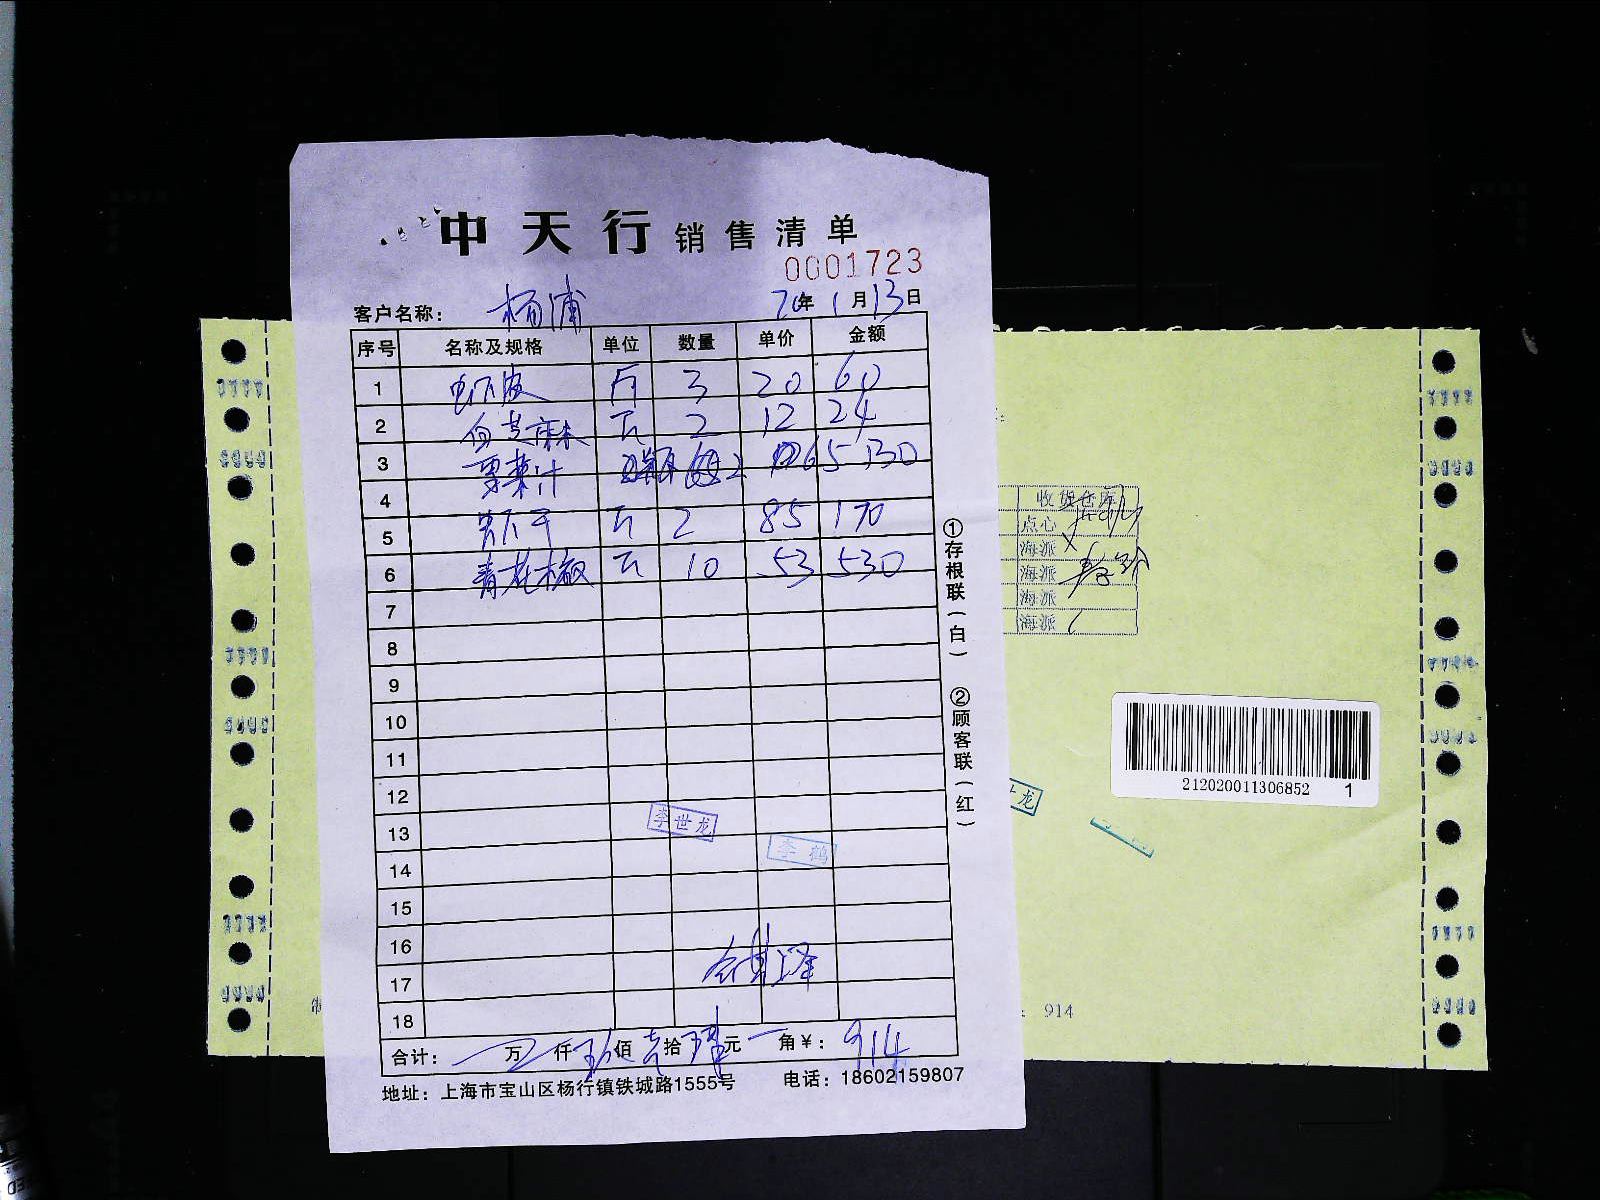 中天行 销售清单
0001723
客户名称： 杨浦 20年 1月 13日
序号 名称及规格 单位 数量 单价 金额
1 斤 3 20 60
2 白芝麻 斤 2 12 24
3 果菜汁 2 65 130
4
5 斤 2 85 170
6 青花椒 斤 10 53 530
7
8
9
10
11
12
13 李世龙
14 李鹤
15
16
17
18
合计： 万 仟 玖佰 壹拾 肆元 角￥： 914
地址：上海市宝山区杨行镇铁城路1555号 电话：18602159807
①存根联（白）
②顾客联（红）
收货仓库
点心
海派
海派
海派
海派
龙
212020011306852 1
914